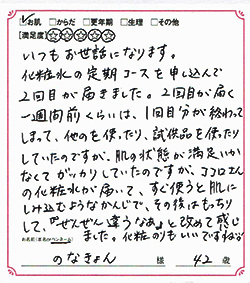 ☑お肌 □からだ □更年期 □生理 □その他
[満足度]☆☆☆☆☆
いつもお世話になります。
化粧水の定期コースを申し込んで
2回目が届きました。2回目が届く
一週間前くらいは、1回目分が終わって
しまって、他のを使ったり、試供品を使ったり
していたのですが、肌の状態が満足いか
なくてガッカリしていたのですが、ココロさん
の化粧水が届いて、すぐ使うと肌に
しみ込むようなかんじで、その後はもっちり
して、『ぜんぜん違うなぁ』と改めて感じ
ました。化粧のりもいいですね
お名前(本名orペンネーム)
のなきょん 様 42歳